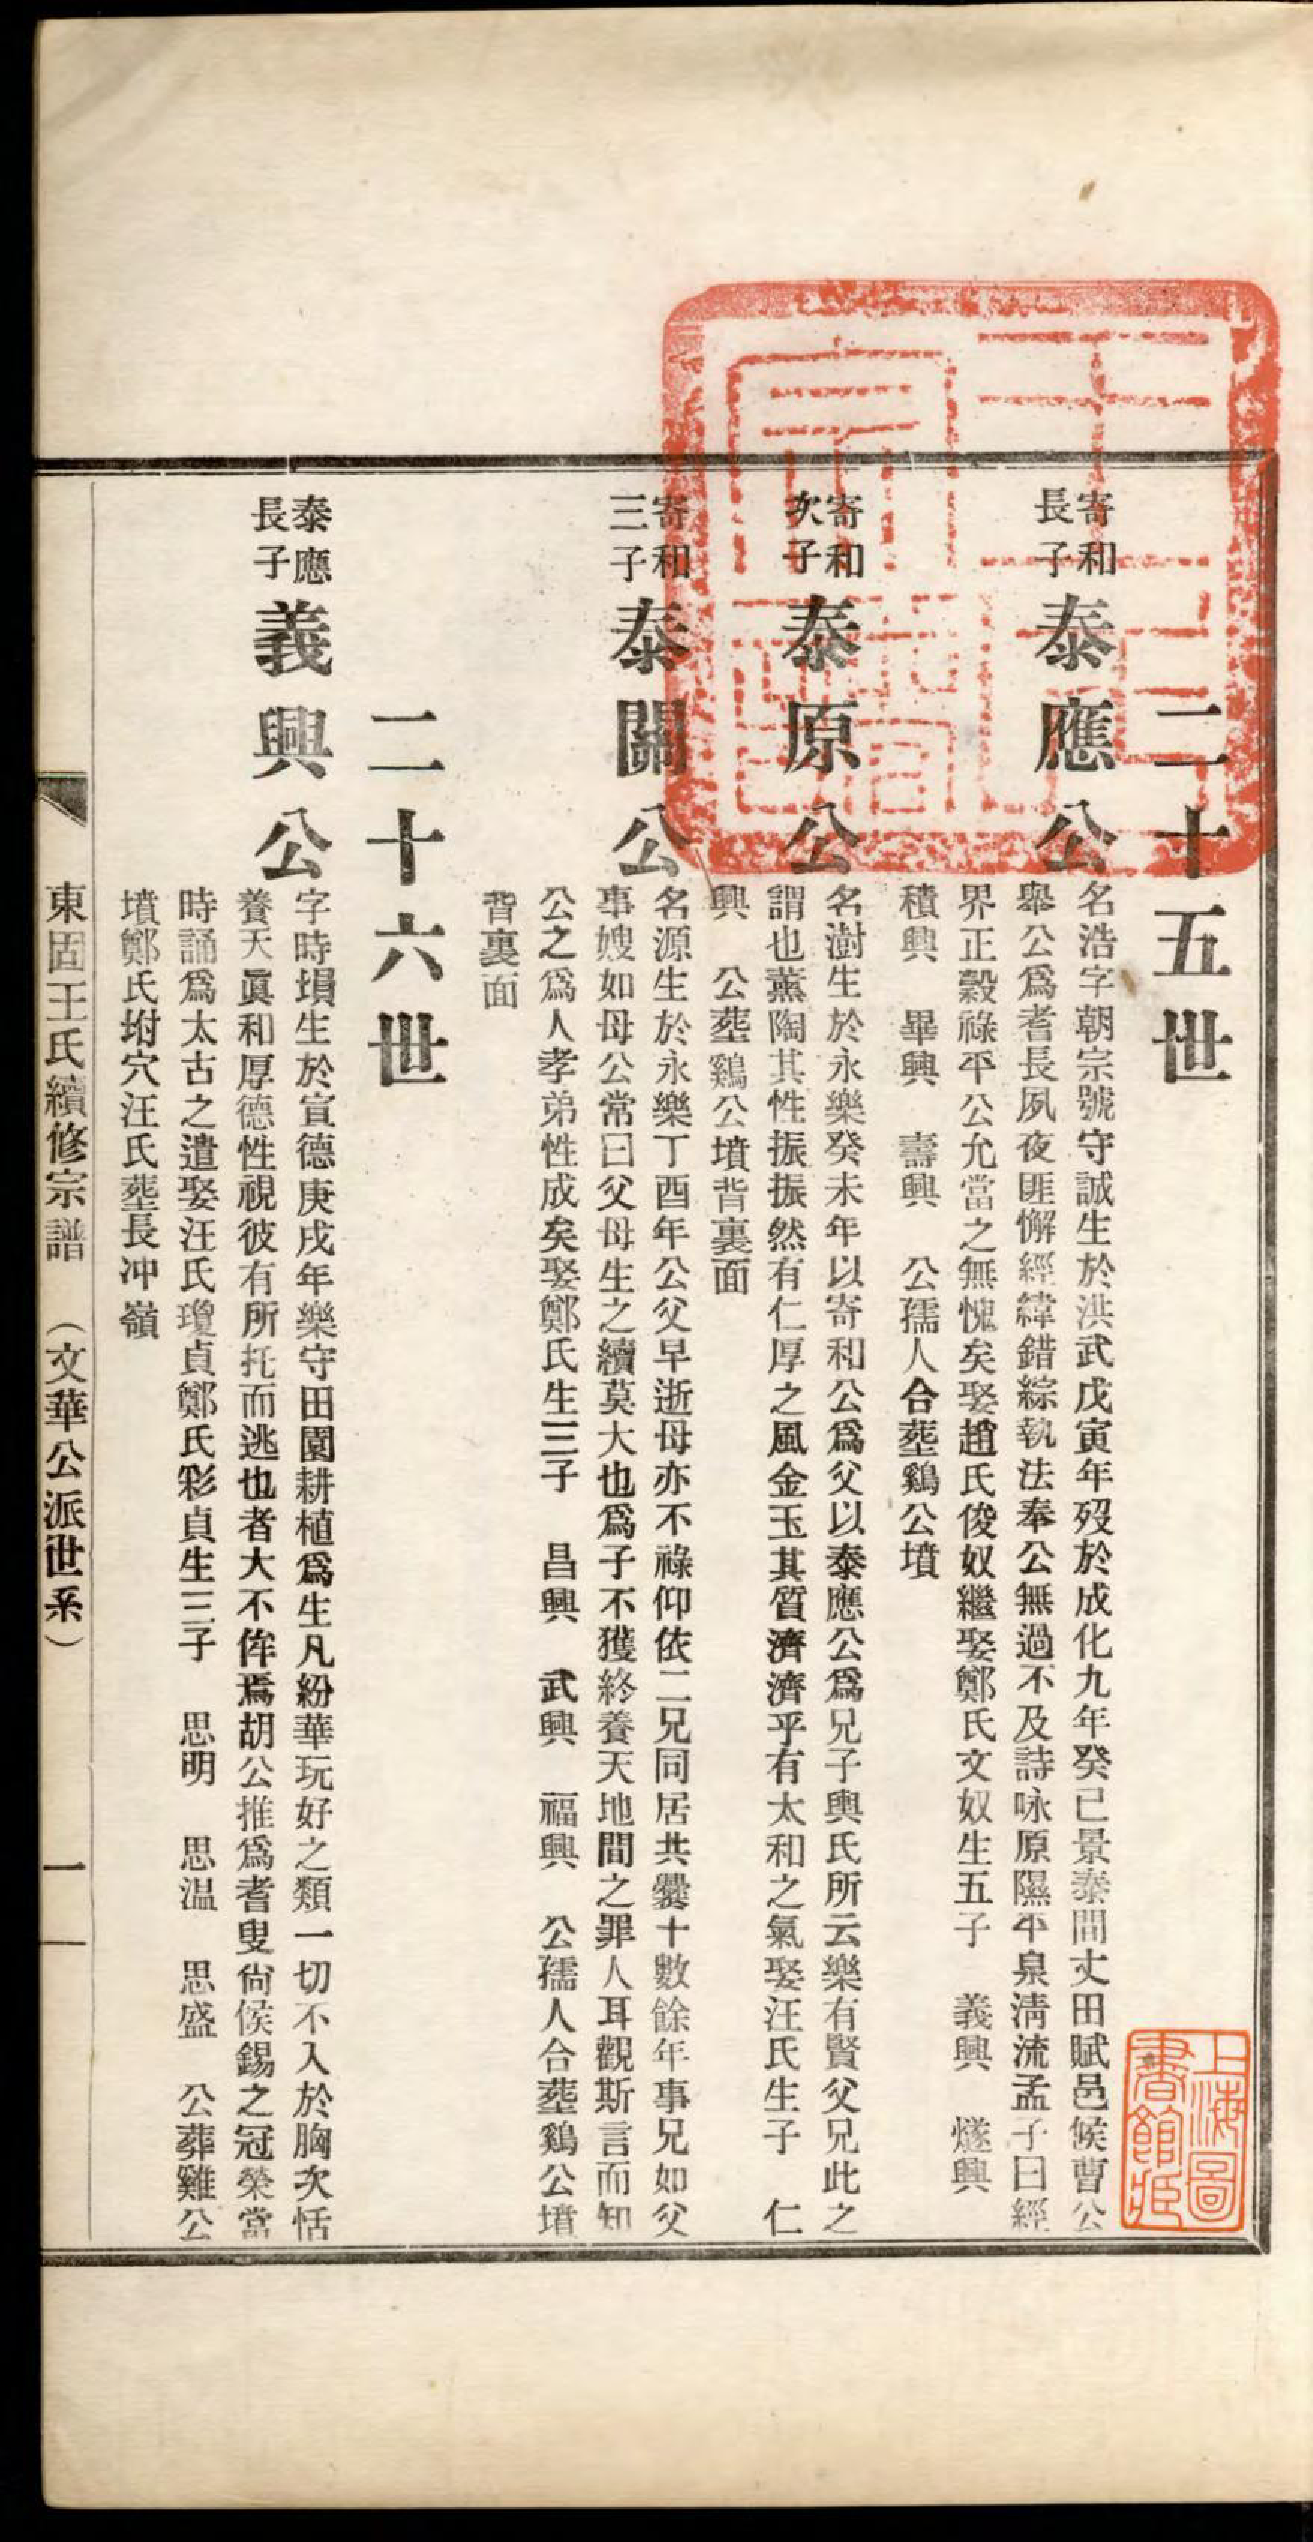 二十五世
寄和
長子
泰應公
名浩字朝宗號守誠生於洪武戊寅年歿於成化九年癸巳景泰間丈田賦邑候曹公
舉公爲耆長夙夜匪懈經緯錯綜執法奉公無過不及詩咏原隰平泉清流孟子曰經
界正穀祿平公允當之無愧矣娶趙氏俊奴繼娶鄭氏文奴生五子　義興　燧興
積興　畢興　壽興　公孺人合葬鷄公墳
寄和
次子
泰原公
名澍生於永樂癸未年以寄和公爲父以泰應公爲兄子輿氏所云樂有賢父兄此之
謂也薰陶其性振振然有仁厚之風金玉其質濟濟乎有太和之氣娶汪氏生子　仁
興　公葬鷄公墳背裏面
寄和
三子
泰關公
名源生於永樂丁酉年公父早逝母亦不祿仰依二兄同居共爨十數餘年事兄如父
事嫂如母公常曰父母生之續莫大也爲子不獲終養天地間之罪人耳觀斯言而知
公之爲人孝弟性成矣娶鄭氏生三子　昌興　武興　福興　公孺人合葬鷄公墳
背裏面
二十六世
泰應
長子
義興公
字時塤生於宣德庚戌年樂守田園耕植爲生凡紛華玩好之類一切不入於胸次恬
養天眞和厚德性視彼有所托而逃也者大不侔焉胡公推爲耆叟尙候錫之冠榮當
時誦爲太古之遺娶汪氏瓊貞鄭氏彩貞生三子　思明　思温　思盛　公葬雞公
墳鄭氏坿穴汪氏葬長冲嶺
東固王氏續修宗譜　（文華公派世系）　一
上海圖
書館藏